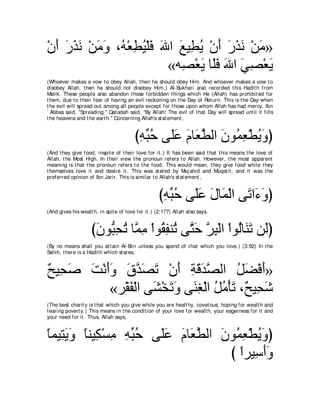 «مَنْ نَذَرَ أَنْ يُطِيعَ اللهَ فَلْيُطِعْهُ، وَمَنْ نَذَرَ أَنْ
يَعْصِيَ اللهَ فَلَا يَعْصِهِ»
(Whoever makes a vow to obey Allah, then he should obey Him. And whoever makes a vow to
disobey Allah, then he should not disobey Him.) Al-Bukhari also recorded this Hadith from
Malik. These people also abandon those forbidden things which He (Allah) has prohibited for
them, due to their fear of having an evil reckoning on the Day of Return. This is the Day when
the evil will spread out among all people except for those upon whom Allah has had mercy. Ibn
`Abbas said, "Spreading." Qatadah said, "By Allah! The evil of that Day will spread until it fills
the heavens and the earth." Concerning Allah's statement,
(وَيُطْعِمُونَ الطَّعَامَ عَلَى حُبِّهِ)
(And they give food, inspite of their love for it,) It has been said that this means the love of
Allah, the Most High. In their view the pronoun refers to Allah. However, the most apparent
meaning is that the pronoun refers to the food. This would mean, they give food while they
themselves love it and desire it. This was stated by Mujahid and Muqatil, and it was the
preferred opinion of Ibn Jarir. This is similar to Allah's statement,
(وَءَاتَى الْمَالَ عَلَى حُبِّهِ)
(And gives his wealth, in spite of love for it.) (2:177) Allah also says,
(لَن تَنَالُواْ الْبِرَّ حَتَّى تُنفِقُواْ مِمَّا تُحِبُّونَ)
(By no means shall you attain Al-Birr unless you spend of that which you love.) (3:92) In the
Sahih, there is a Hadith which states,
«أَفْضَلُ الصَّدَقَةِ أَنْ تَصَدَّقَ وَأَنْتَ صَحِيحٌ
شَحِيحٌ، تَأْمُلُ الْغِنَى وَتَخْشَى الْفَقْر»
(The best charity is that which you give while you are healthy, covetous, hoping for wealth and
fearing poverty.) This means in the condition of your love for wealth, your eagerness for it and
your need for it. Thus, Allah says,
(وَيُطْعِمُونَ الطَّعَامَ عَلَى حُبِّهِ مِسْكِيناً وَيَتِيماً
وَأَسِيراً )